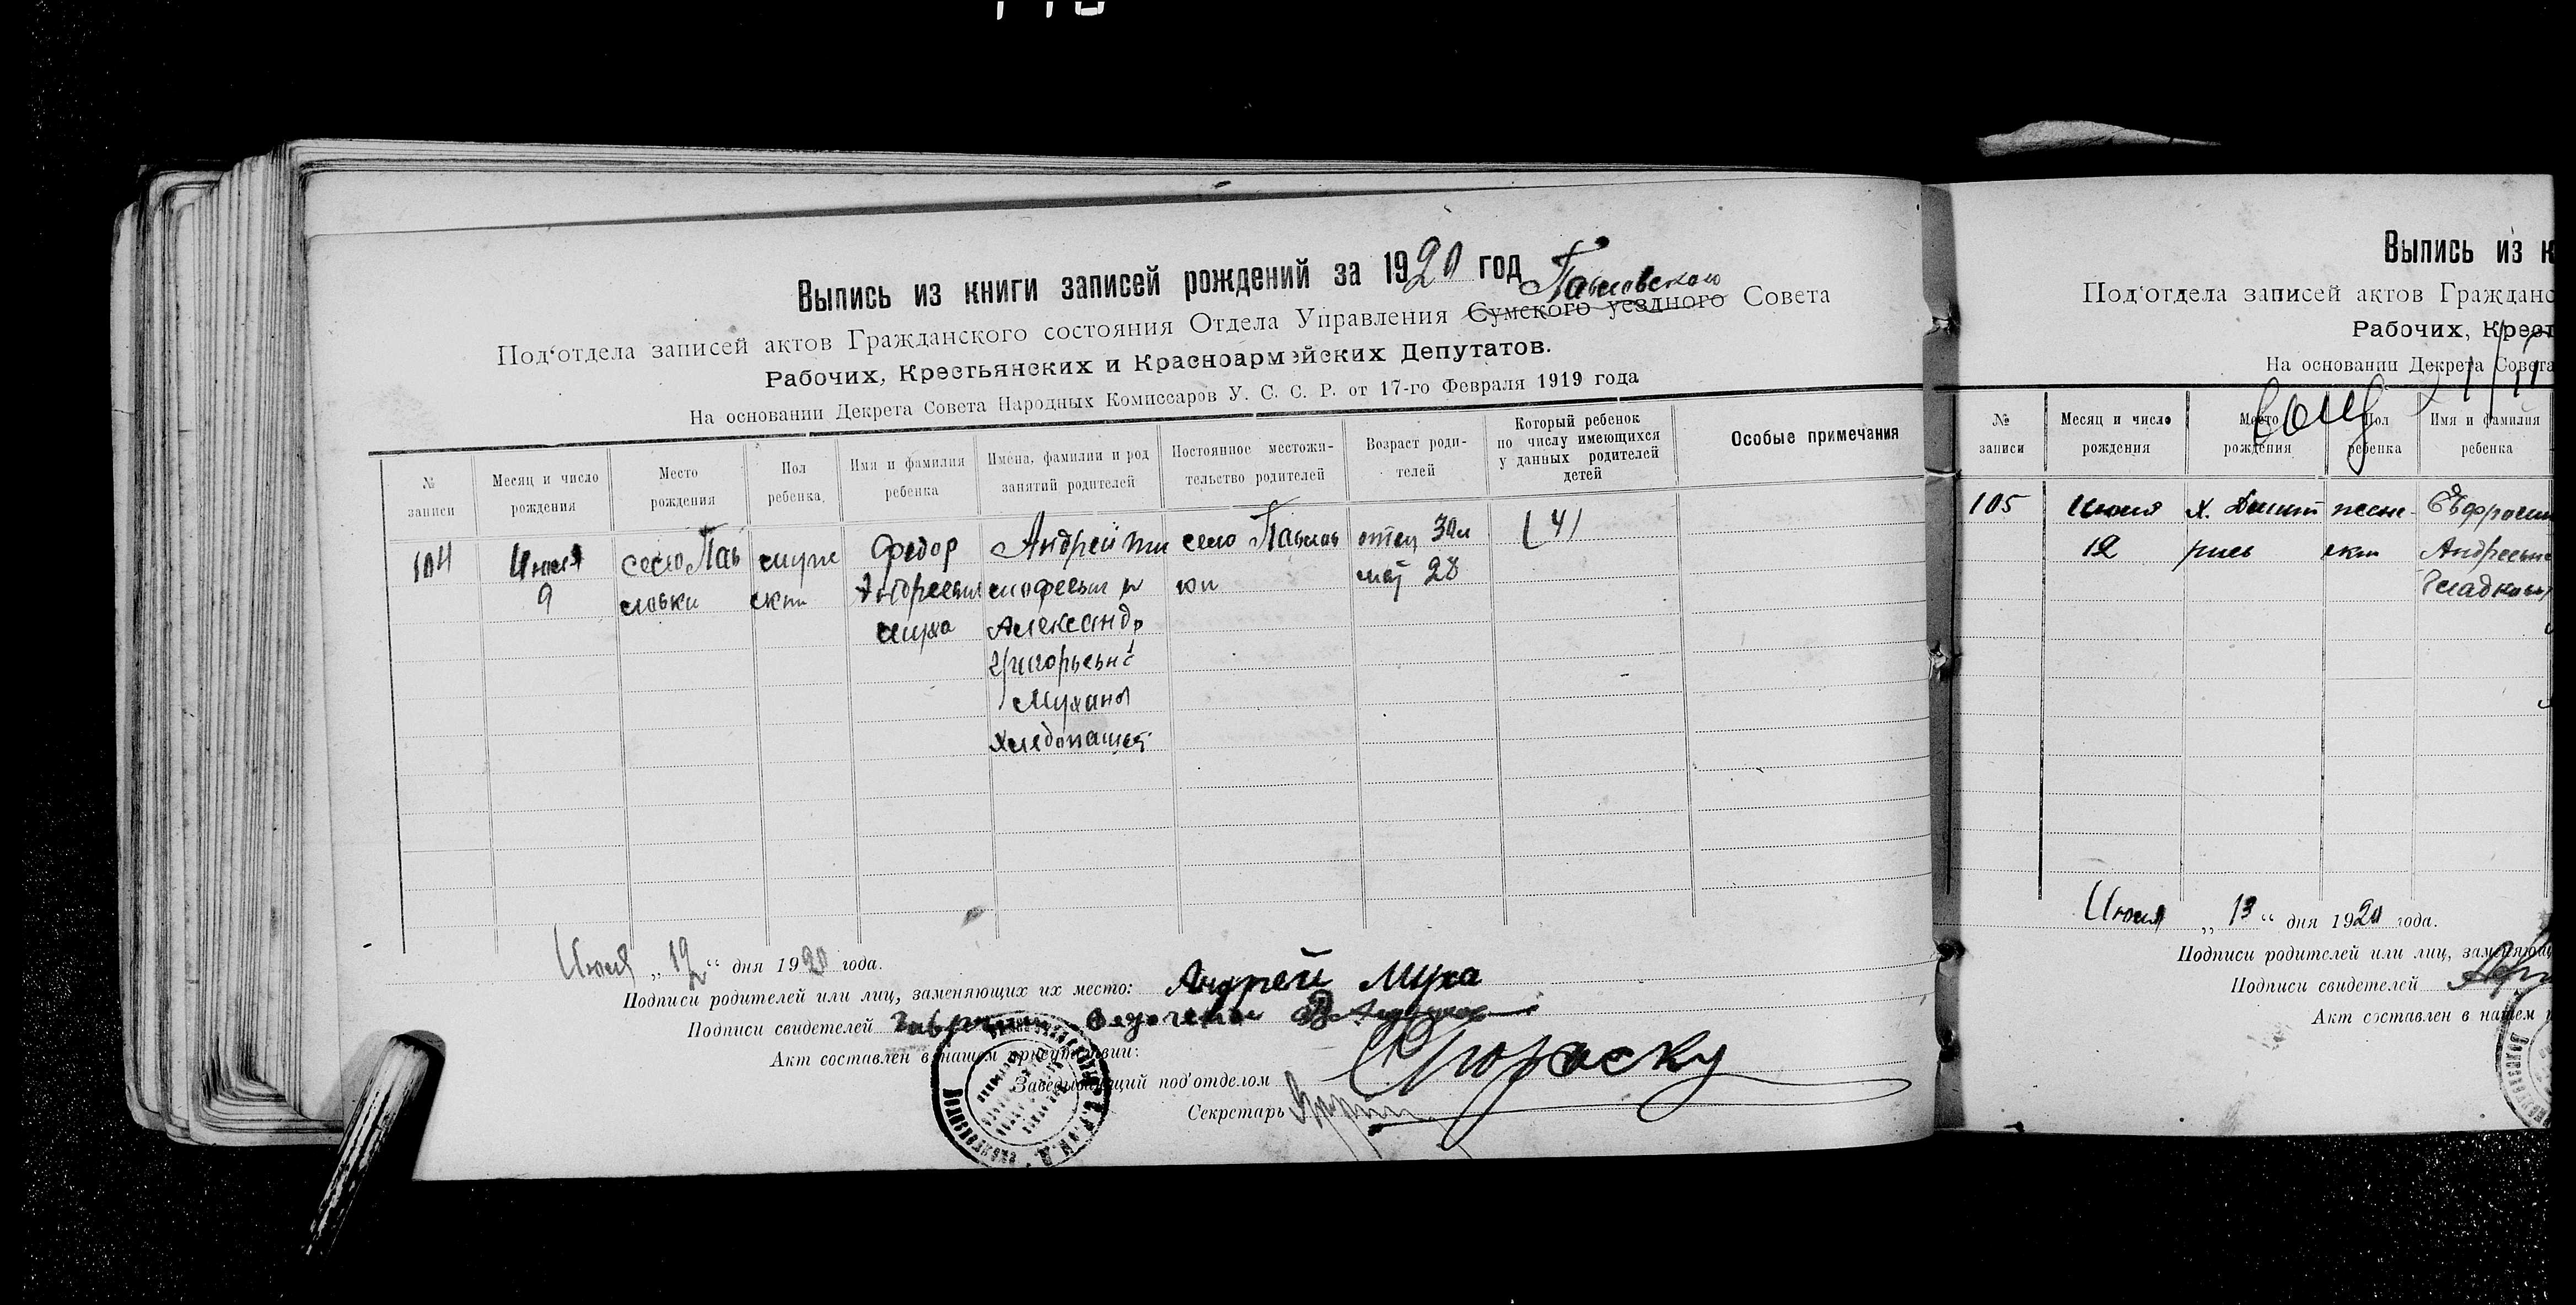 Выпись из книги записей рождений за 1920 год
Павловского
Под'отдела записей актов Гражданского состояния Отдела Управления Сумского уездного Совета
Рабочих, Крестьянских и Красноармейских Депутатов.
На основании Декрета Совета Народных Комиссаров У. С. С. Р. от 17-го Февраля 1919 года
№ записи
Месяц и число рождения
Место рождения
Пол ребенка
Имя и фамилия ребенка
Имена, фамилии и род занятий родителей
Постоянное местожительство родителей
Возраст родителей
Который ребенок по числу имеющихся у данных родителей детей
Особые примечания
104
Июня
9
село Пав
ловки
муж
ском
Федор
Андреевич
Муха
Андрей Ти
мофеевич и
Александр
Григорьевна
Мухины
Хлебопашец
село Павлов
ки
отец 30 л
мат 28
(4)
Июня „12“ дня 1920 года.
Подписи родителей или лиц, заменяющих их место: Андрей Муха
Подписи свидетелей
Акт составлен в нашем присутствии:
Заведывающий под'отделом
Секретарь
Выпись из к
Под'отдела записей актов Гражданс
Рабочих, Крест
На основании Декрета Совета
№ записи
Месяц и число рождения
Место рождения
Пол ребенка
Имя и фамилия ребенка
105
Июня
12
женс
ком
Андреевна
Гладкова
Июня „13“ дня 1920 года.
Подписи родителей или лиц, заменяющ
Подписи свидетелей
Акт составлен в нашем п